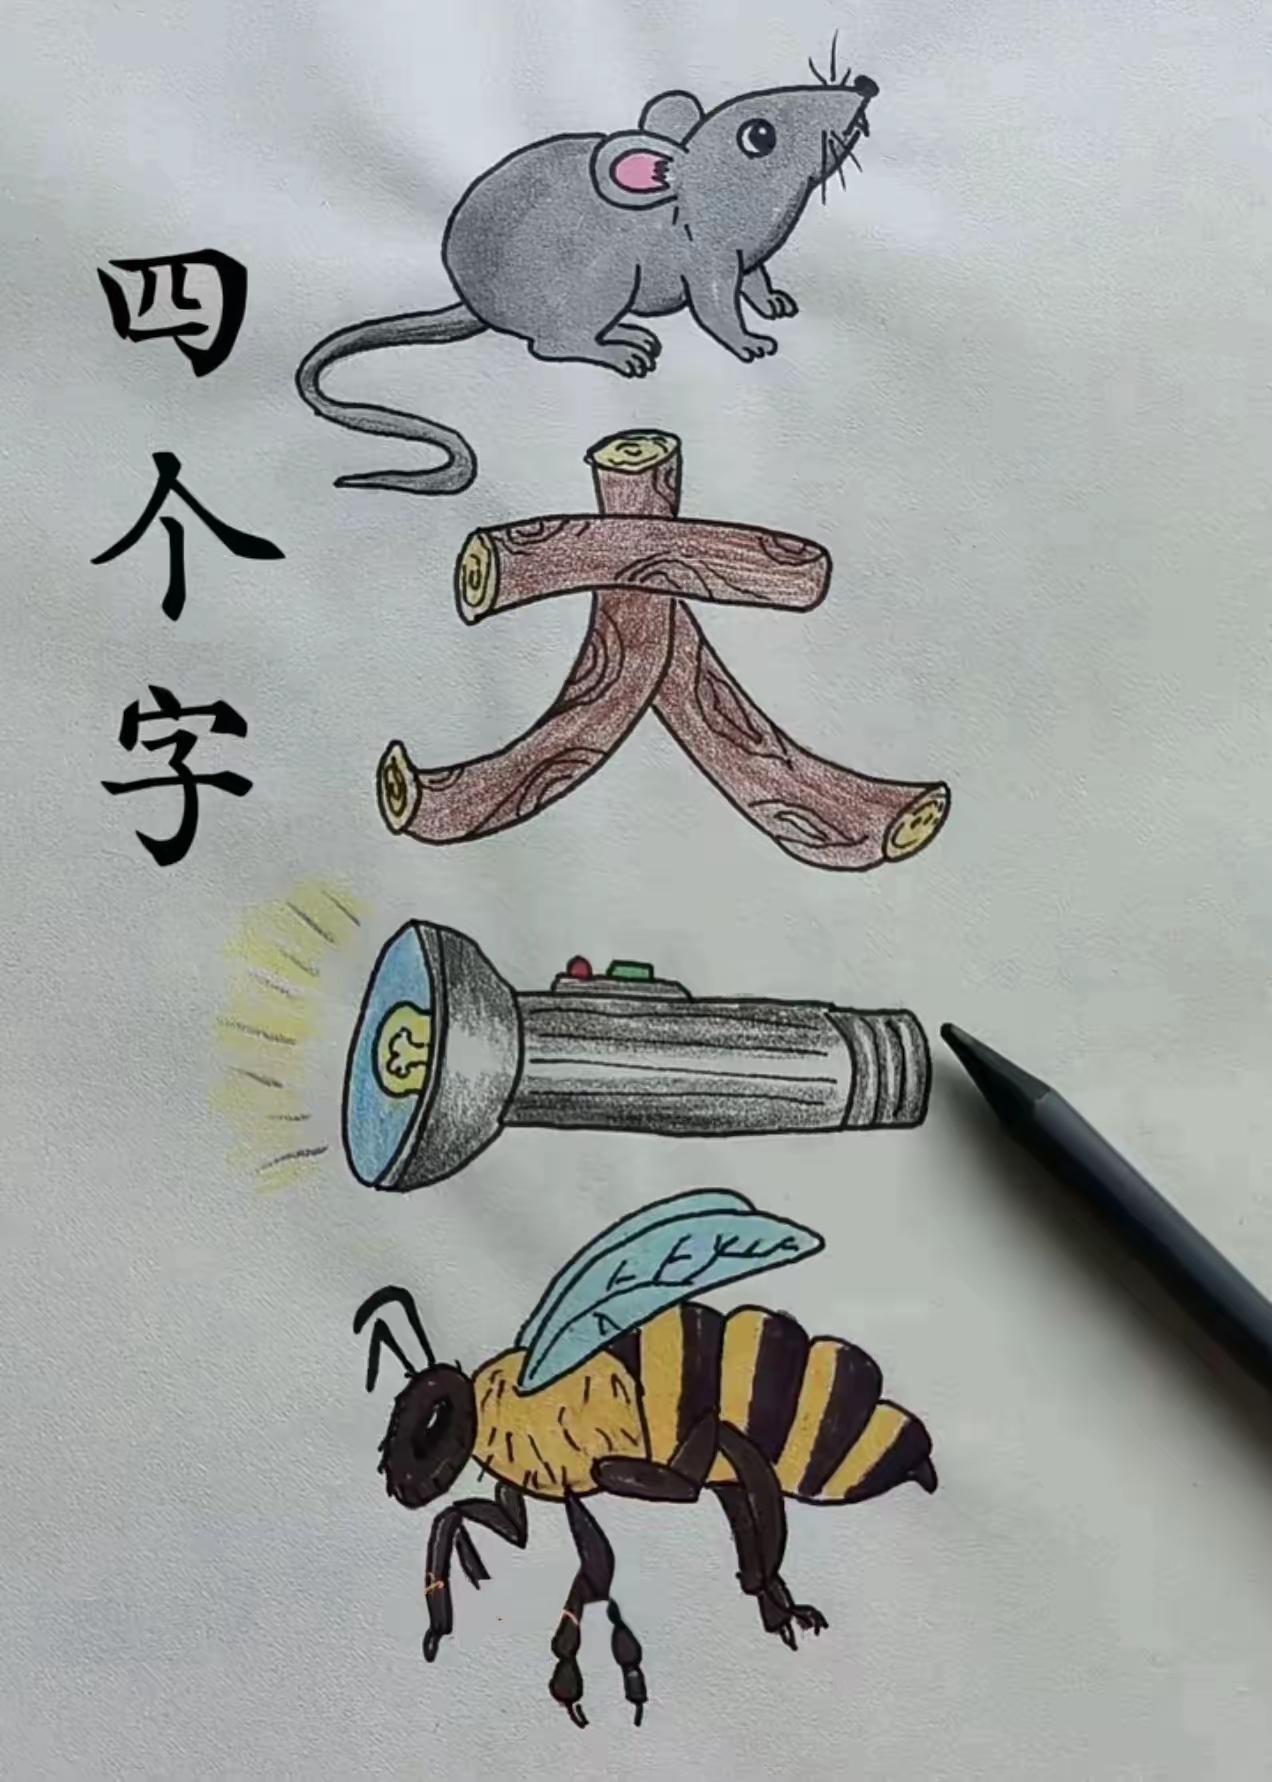 四个字
大